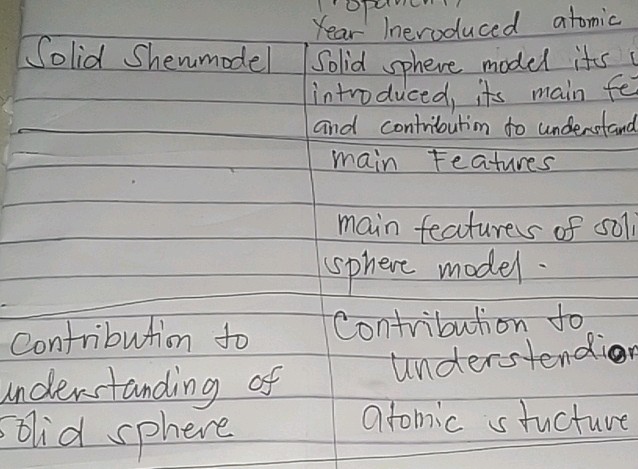 Year Ineroduced atomic
Solid Shenmodel
Solid sphere model its
introduced, its main fe
and contribution to understand
main Features
main features of soli
sphere model.
Contribution to
understanding of
solid sphere
Contribution to
understendion
atomic stucture